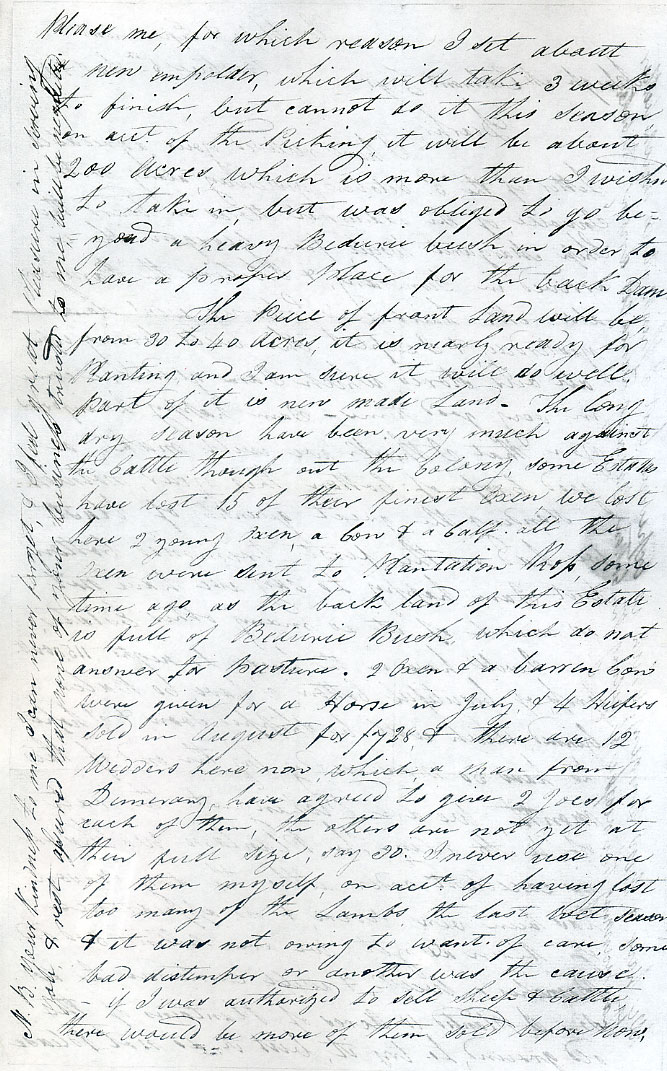 Please me, for which reason I set about
new impolder, which will take 3 weeks
to finish, but cannot do it this season
on acct. of the Picking, it will be about
200 Acres, which is more than I wish
to take in, but was obliged to go be=
=yond a heavy Bedurie bush in order to
have a proper place for the back Dam
The Piece of front Land will be
from 30 to 40 Acres, it is nearly ready for
Planting, and I am sure it will do well,
Part of it is new made Land - The long
dry season have been very much against
the Cattle though out the Colony, some Estates
have lost 15 of their finest Oxen, we lost
here 2 young Oxen, a Cow & a Calf. all the
Oxen were sent to Plantation some
time ago, as the back land of this Estate
is full of Bedurie Bush, which do not
answer for Pasture. 2 Oxen & a barren Cow
were given for a Horse in July, & 4 Hiefers
sold in August for & there are 12
Wedders here now, which a man from
Demerary, have agreed to give 2 Joes for
each of them, the others are not yet at
their full size, say 30. I never use one
of them myself, on acct. of having lost
too many of the Lambs the last wet season
& it was not owing to want of care, some
bad distemper or another was the cause.
- if I was authorized to sell sheep & Cattle
there would be more of them sold before Now.
N.B. Your kindness to me I can never forget, & I feel great Pleasure in doing
& rest assured that none of mine business trusted to me will be neglected.